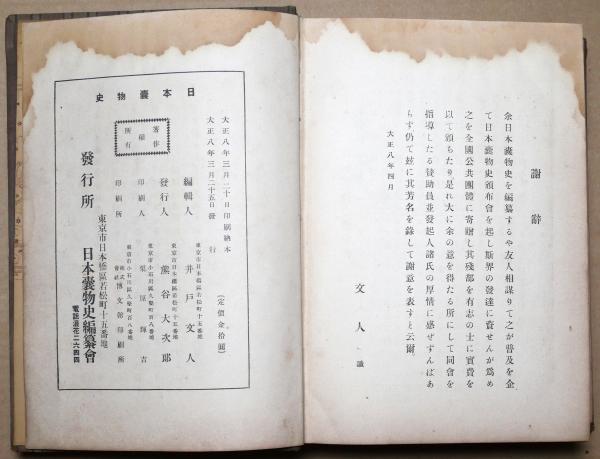 謝辭
余日本嚢物史を編纂するや友人相謀りて之が普及を企
て日本嚢物史頒布會を起し斯界の發達に資せんが爲め
之を全國公共團體に寄贈し其殘部を有志の士に實費を
以て頒ちたり是れ大に余の意を得たる所にして同會を
指導したる賛助員並發起人諸氏の厚情に感ぜずんばあ
らず仍て玆に其芳名を錄して謝意を表すと云爾
大正八年四月
文人識
日本嚢物史
大正八年三月二十日印刷納本
大正八年三月二十五日發行
(定價金拾圓)
著作
權
所有
東京市日本橋區若松町十五番地
編輯人 井戸文人
東京市日本橋區若松町十五番地
發行人 熊谷大次郎
東京市小石川區久堅町百八番地
印刷人 栗原輝吉
東京市小石川區久堅町百八番地
印刷所 株式會社博文館印刷所
東京市日本橋區若松町十五番地
發行所 日本嚢物史編纂會
電話浪花二六四四